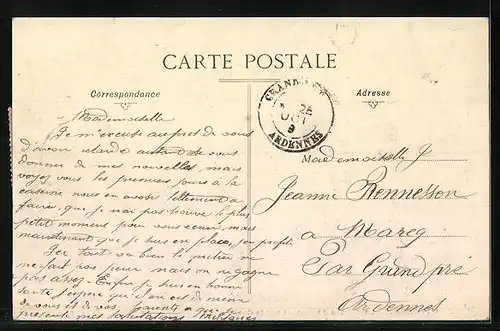 CARTE POSTALE
Correspondance
Adresse
GRANDPRÉ
28
OCT
9
ARDENNES
Mademoiselle
Je m'excuse auprès de vous
d'avoir retardé autant de vous
donner de mes nouvelles, mais
voyez vous les premiers jours à la
caserne nous en avons tellement a
faire, que je n'ai pas trouvé le plus
petit moment pour vous écrire, mais
maintenant que je suis en place, j'en profite
Par tout va bien le métier ne
me fait pas peur mais on ne gagne
pas assez. Enfin je suis en bonne
santé j'espère qu'il en est de même
de vous et de vos parents
présente mes salutations
Mademoiselle
Jeanne Rennesson
a Marcq
Par Grand pré
Ardennes